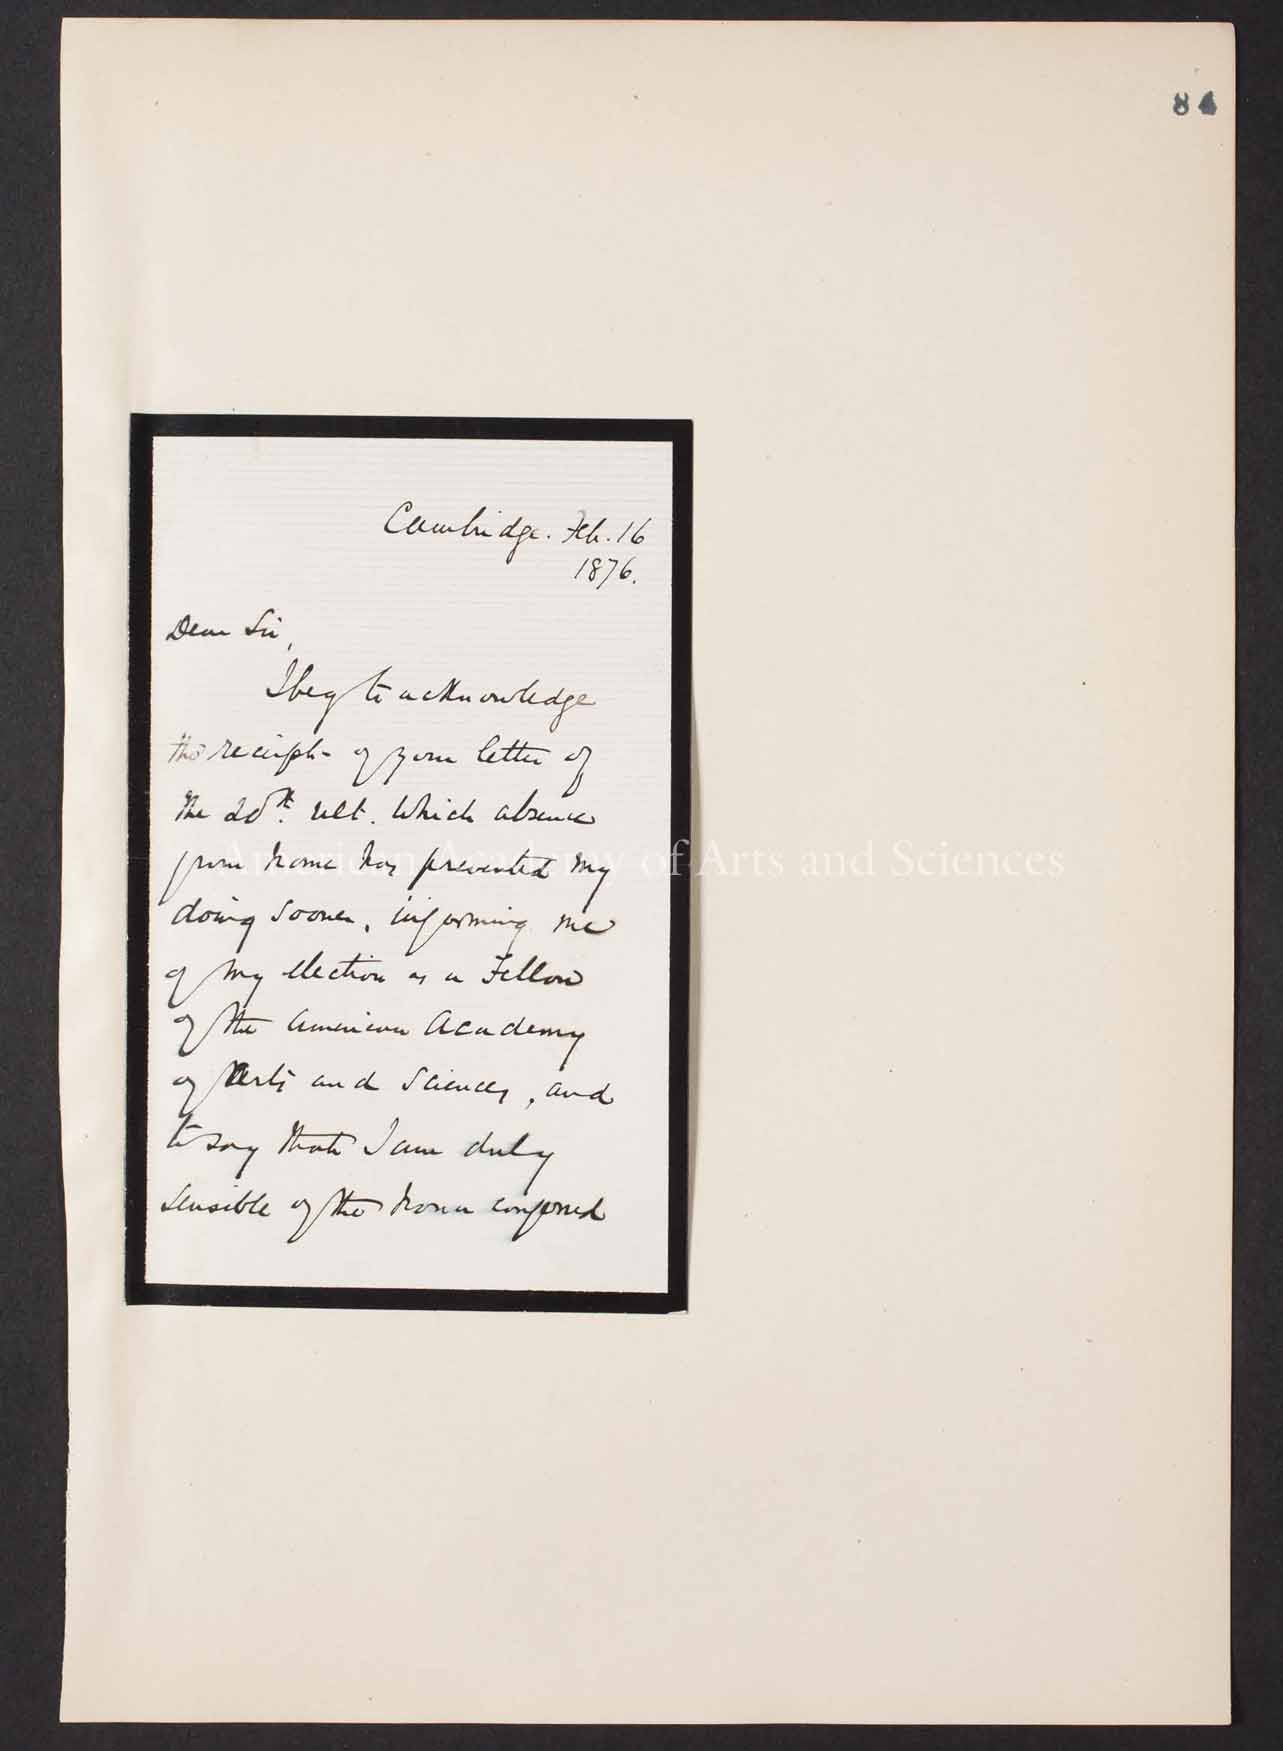 84
Cambridge. Feb. 16
1876.
Dear Sir,
I beg to acknowledge
the receipt of your letter of
the 20th. ult. which absence
from home has prevented my
doing sooner, informing me
of my election as a Fellow
of the American Academy
of Arts and Sciences, and
to say that I am duly
sensible of the honor conferred
American Academy of Arts and Sciences